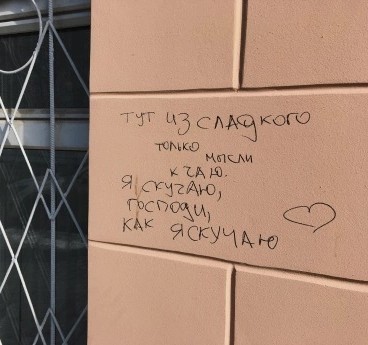 ТУТ ИЗ СЛАДКОГО
ТОЛЬКО
МЫСЛИ
К ЧАЮ.
Я СКУЧАЮ,
ГОСПОДИ,
КАК Я СКУЧАЮ